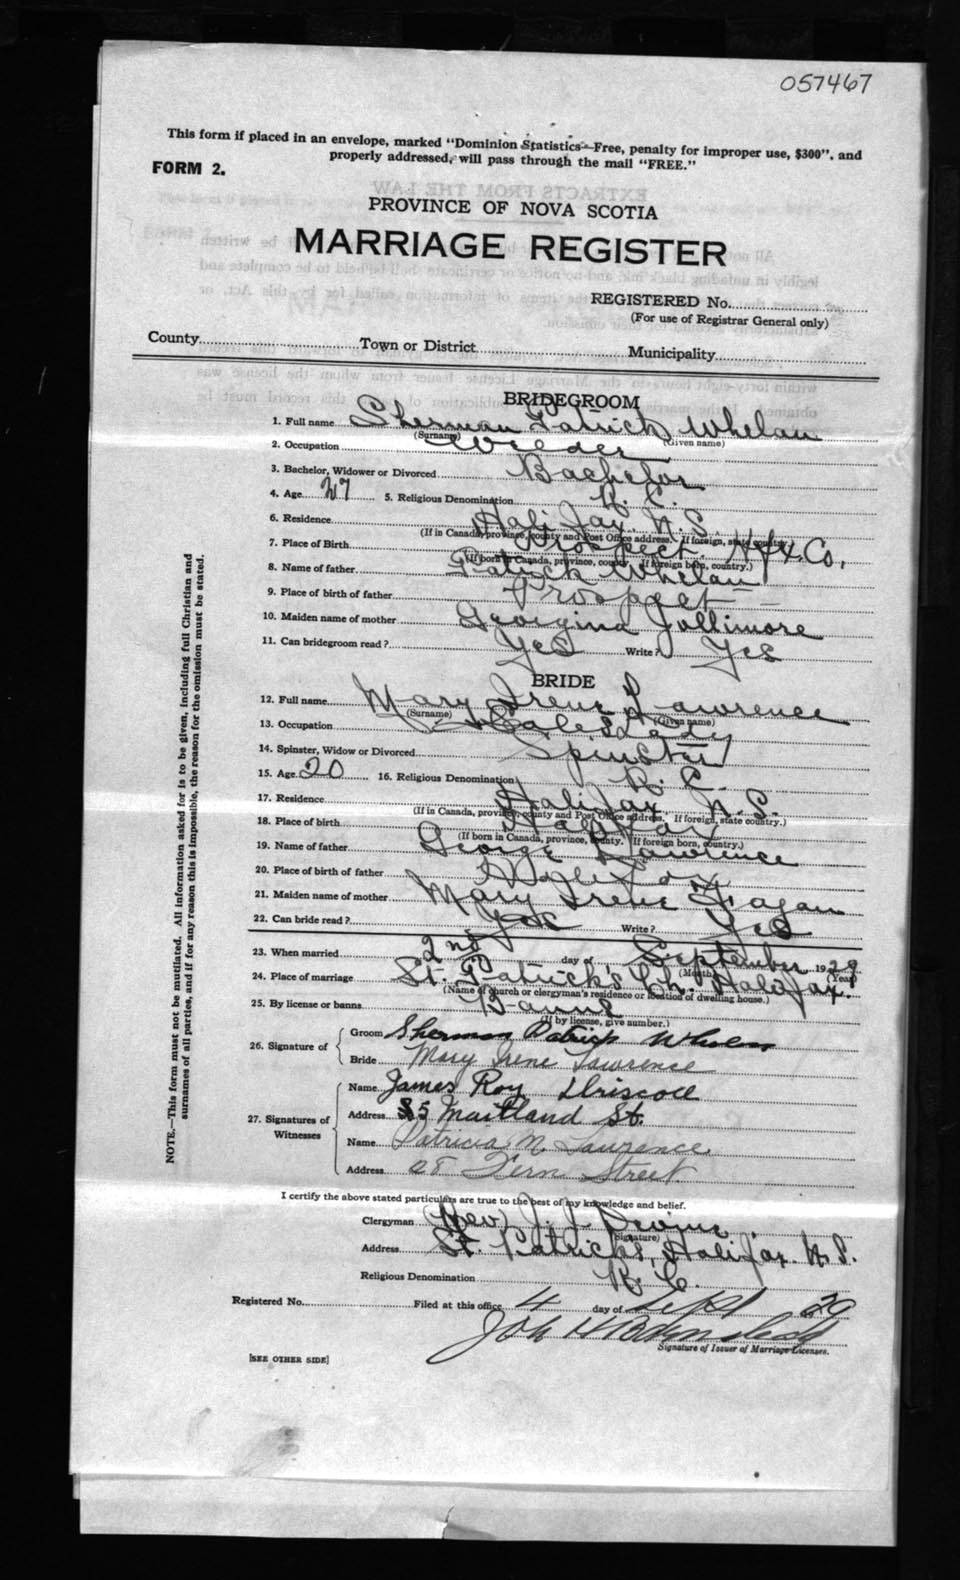 057467
This form if placed in an envelope, marked "Dominion Statistics—Free, penalty for improper use, $300", and
properly addressed, will pass through the mail "FREE."
FORM 2.
PROVINCE OF NOVA SCOTIA
MARRIAGE REGISTER
REGISTERED No.
(For use of Registrar General only)
County Town or District Municipality
BRIDEGROOM
1. Full name Sherman Patrick Whelan
(Surname) (Given name)
2. Occupation Welder
3. Bachelor, Widower or Divorced Bachelor
4. Age 27 5. Religious Denomination R. C.
6. Residence Halifax, N. S.
(If in Canada, province, county and Post Office address. If foreign, state country.)
7. Place of Birth Prospect, Hfx. Co.
(If born in Canada, province, county. If foreign born, country.)
8. Name of father Patrick Whelan
9. Place of birth of father Prospect
10. Maiden name of mother Georgina Jollimore
11. Can bridegroom read? Yes Write? Yes
BRIDE
12. Full name Mary Irene Lawrence
(Surname) (Given name)
13. Occupation Saleslady
14. Spinster, Widow or Divorced Spinster
15. Age 20 16. Religious Denomination R. C.
17. Residence Halifax N. S.
(If in Canada, province, county and Post Office address. If foreign, state country.)
18. Place of birth Halifax
(If born in Canada, province, county. If foreign born, country.)
19. Name of father George Lawrence
20. Place of birth of father
21. Maiden name of mother Mary Irene Fagan
22. Can bride read? Yes Write? Yes
23. When married 2nd day of September 1929
(Month) (Year)
24. Place of marriage St. Patrick's Ch. Halifax.
(Name of church or clergyman's residence or location of dwelling house.)
25. By license or banns Banns
(If by license, give number.)
26. Signature of Groom Sherman Patrick Whelan
Bride Mary Irene Lawrence
27. Signatures of Witnesses Name James Roy Driscoll
Address 85 Maitland St.
Name Patricia M. Lawrence
Address 28 Fern Street
I certify the above stated particulars are true to the best of my knowledge and belief.
Clergyman (Rev) J. J. Devine
(Signature)
Address St. Patricks, Halifax N. S.
Religious Denomination R. C.
Registered No. Filed at this office 4 day of Sept 29
Signature of Issuer of Marriage Licenses.
[SEE OTHER SIDE]
NOTE.—This form must not be mutilated. All information asked for is to be given, including full Christian and
surnames of all parties, and if for any reason this is impossible, the reason for the omission must be stated.